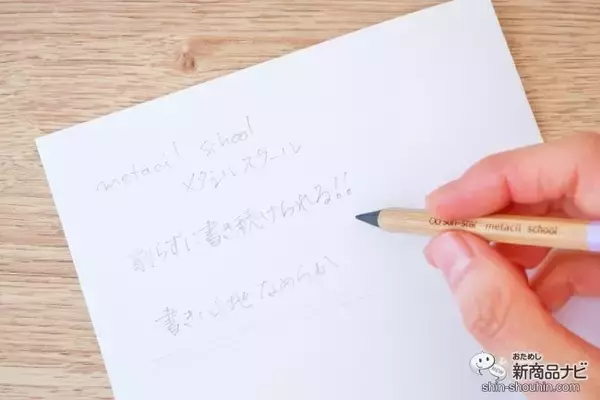 metacil school
メタシル スクール
削らずに書き続けられる!!
書き心地なめらか
sun-star metacil school
おためし
新商品ナビ
shin-shouhin.com